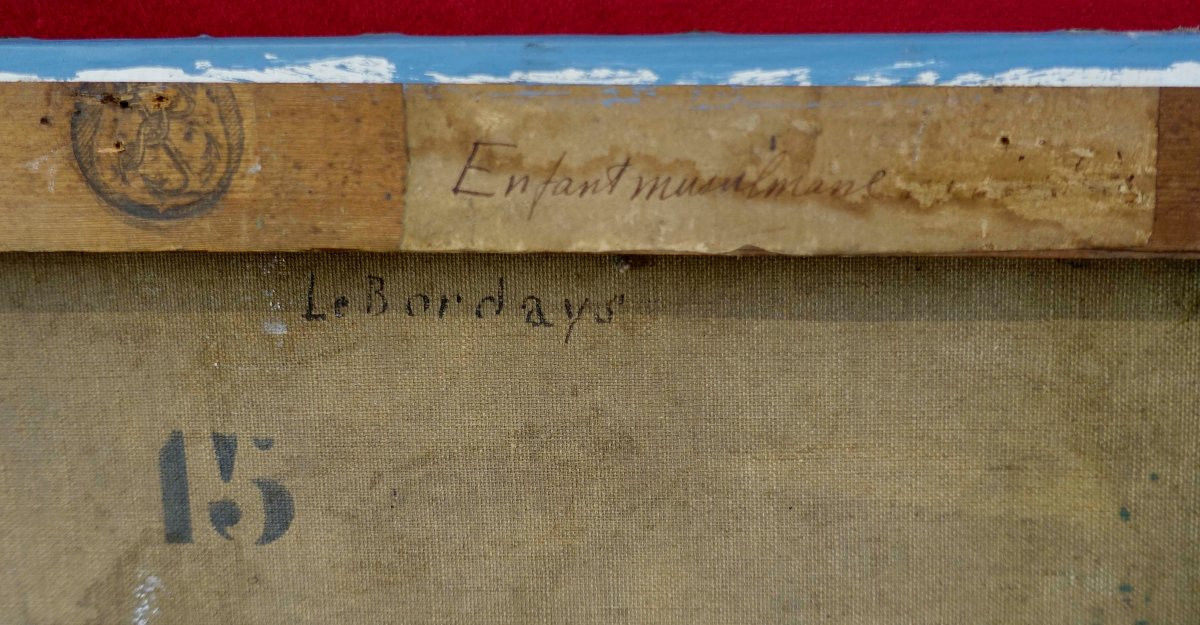 Enfant musulmane
Le Bordays
15